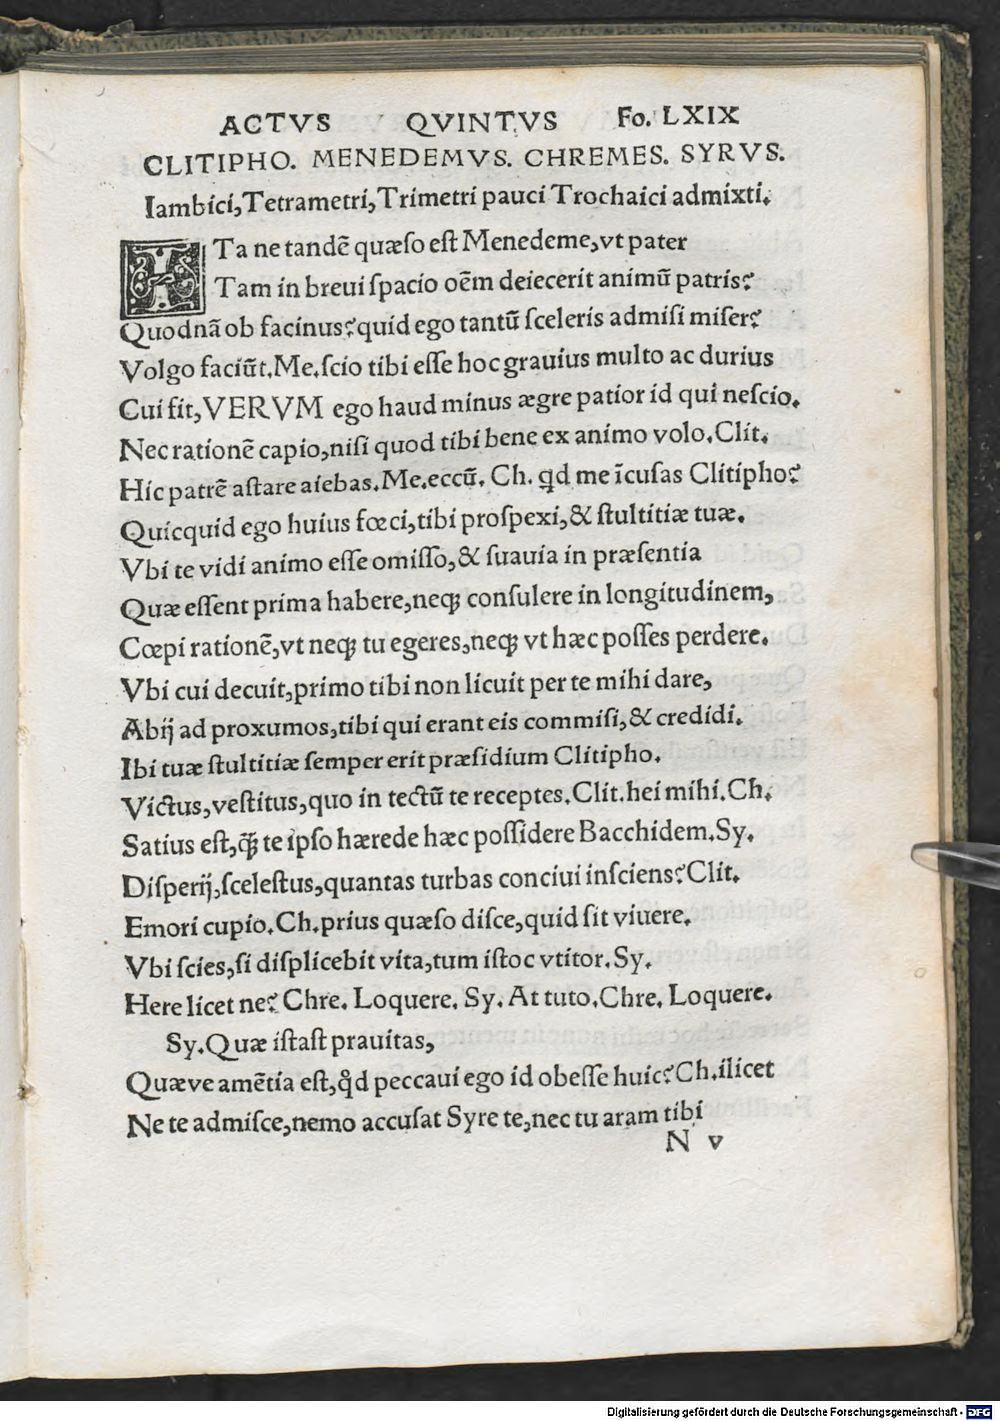 ACTVS QVINTVS Fo. LXIX
CLITIPHO. MENEDEMVS. CHREMES. SYRVS.
Iambici, Tetrametri, Trimetri pauci Trochaici admixti.
ITa ne tandē quæſo eſt Menedeme, vt pater
Tam in breui ſpacio oēm deiecerit animū patris?
Quodnā ob facinus? quid ego tantū ſceleris admiſi miſer?
Volgo faciūt. Me. ſcio tibi eſſe hoc grauius multo ac durius
Cui fit, VERVM ego haud minus ægre patior id qui neſcio.
Nec rationē capio, niſi quod tibi bene ex animo volo. Clit.
Hic patrē aſtare aiebas. Me. eccū. Ch. qd me īcuſas Clitipho?
Quicquid ego huius fœci, tibi proſpexi, & ſtultitiæ tuæ.
Vbi te vidi animo eſſe omiſſo, & ſuauia in præſentia
Quæ eſſent prima habere, neqꝫ conſulere in longitudinem,
Cœpi rationē, vt neqꝫ tu egeres, neqꝫ vt hæc poſſes perdere.
Vbi cui decuit, primo tibi non licuit per te mihi dare,
Abij ad proxumos, tibi qui erant eis commiſi, & credidi.
Ibi tuæ ſtultitiæ ſemper erit præſidium Clitipho.
Victus, veſtitus, quo in tectū te receptes. Clit. hei mihi. Ch.
Satius eſt, q̄ꝫ te ipſo hærede hæc poſſidere Bacchidem. Sy.
Diſperij, ſceleſtus, quantas turbas conciui inſciens? Clit.
Emori cupio. Ch. prius quæſo diſce, quid ſit viuere.
Vbi ſcies, ſi diſplicebit vita, tum iſtoc vtitor. Sy.
Here licet ne? Chre. Loquere. Sy. At tuto. Chre. Loquere.
Sy. Quæ iſtaſt prauitas,
Quæve amētia eſt, qd̵ peccaui ego id obeſſe huic? Ch. ilicet
Ne te admiſce, nemo accuſat Syre te, nec tu aram tibi
N v
Digitalisierung gefördert durch die Deutsche Forschungsgemeinschaft - DFG